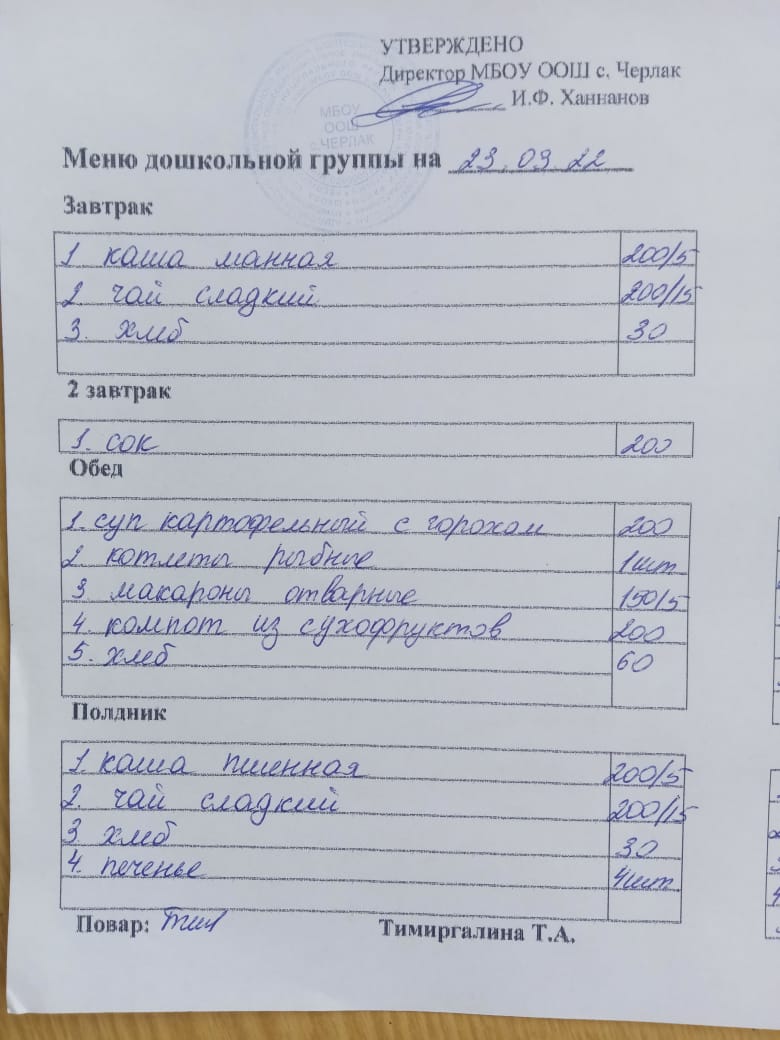 УТВЕРЖДЕНО
Директор МБОУ ООШ с. Черлак
И.Ф. Ханнанов
МБОУ
ООШ
с.ЧЕРЛАК
Меню дошкольной группы на 23.09.22
Завтрак
1 каша манная 200/5
2 чай сладкий 200/15
3. хлеб 30
2 завтрак
1. сок 200
Обед
1. суп картофельный с горохом 200
2 котлеты рыбные 1шт
3 макароны отварные 150/5
4. компот из сухофруктов 200
5. хлеб 60
Полдник
1. каша пшенная 200/5
2. чай сладкий 200/15
3 хлеб 30
4. печенье 4шт
Повар: Тимиргалина Т.А.